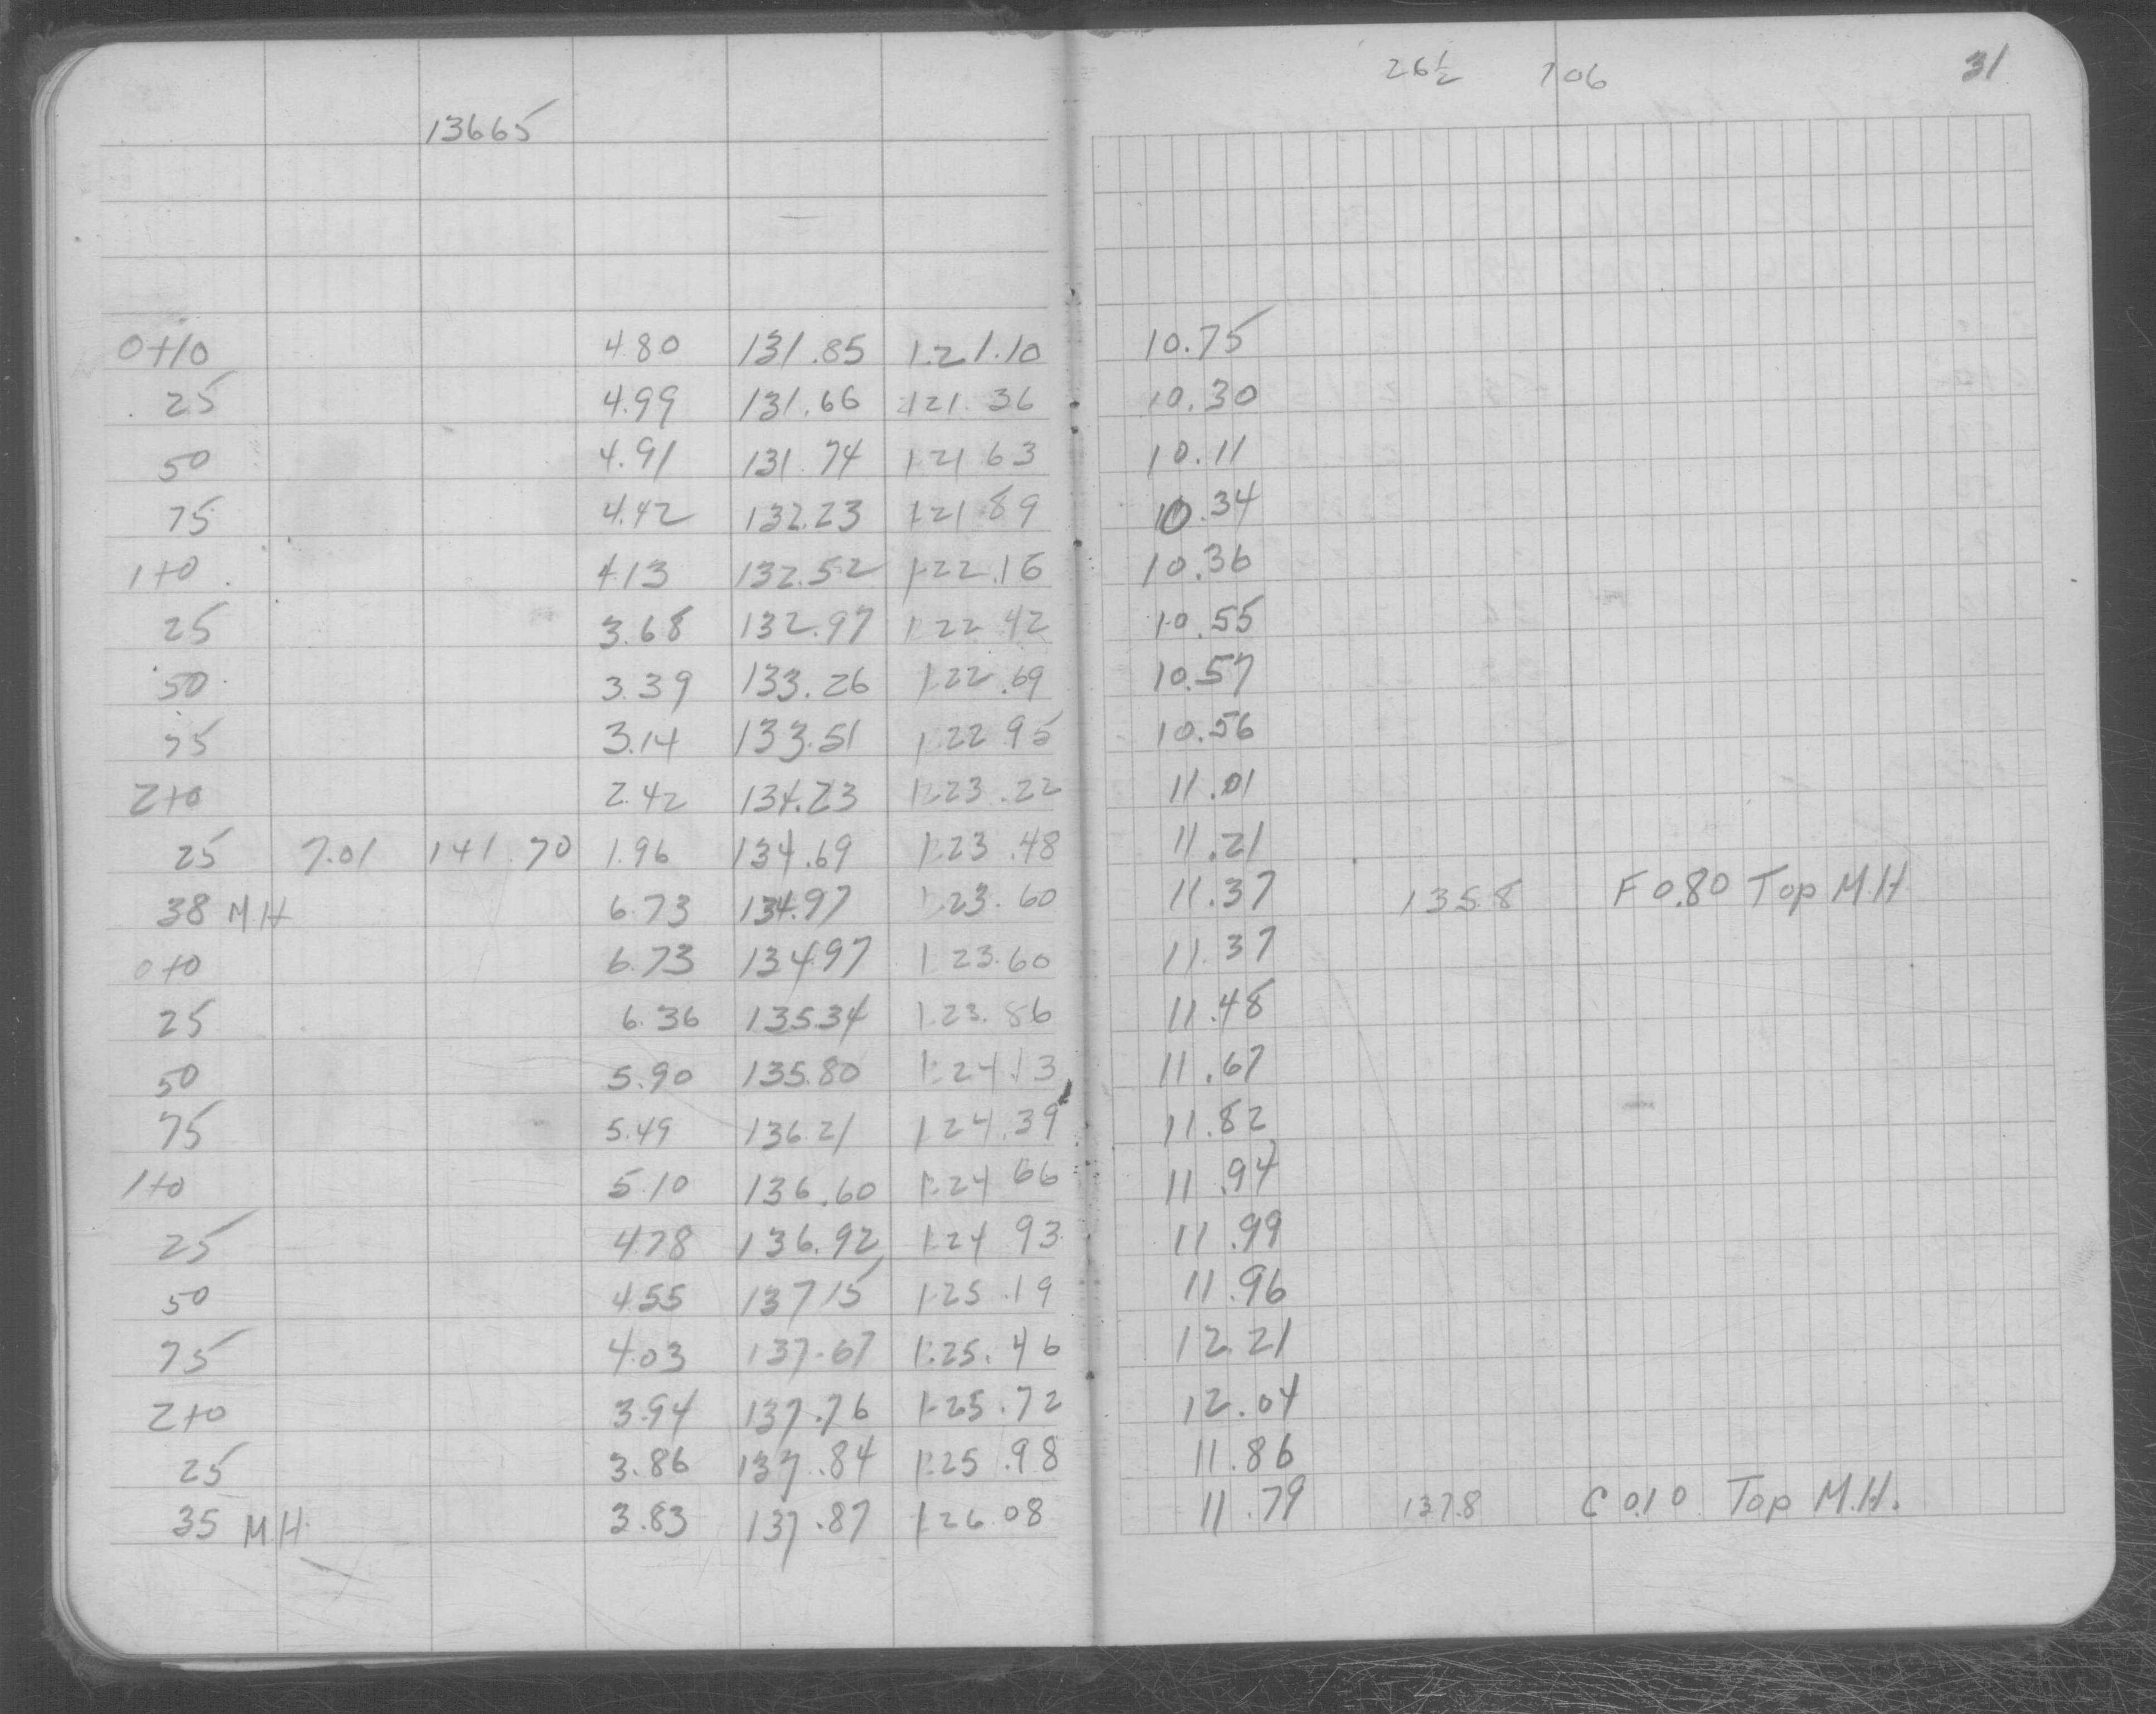 26½ 106 31
13665
0+10 4.80 131.85 121.10 10.75
25 4.99 131.66 121.36 10.30
50 4.91 131.74 121.63 10.11
75 4.42 132.23 121.89 10.34
1+0 4.13 132.52 122.16 10.36
25 3.68 132.97 122.42 10.55
50 3.39 133.26 122.69 10.57
75 3.14 133.51 122.95 10.56
2+0 2.42 134.23 123.22 11.01
25 7.01 141.70 1.96 134.69 123.48 11.21
38 M.H 6.73 134.97 123.60 11.37 135.8 F 0.80 Top M.H.
0+0 6.73 134.97 123.60 11.37
25 6.36 135.34 123.86 11.48
50 5.90 135.80 124.13 11.67
75 5.49 136.21 124.39 11.82
1+0 5.10 136.60 124.66 11.94
25 4.78 136.92 124.93 11.99
50 4.55 137.15 125.19 11.96
75 4.03 137.67 125.46 12.21
2+0 3.94 137.76 125.72 12.04
25 3.86 137.84 125.98 11.86
35 M.H. 3.83 137.87 126.08 11.79 137.8 C 0.10 Top M.H.